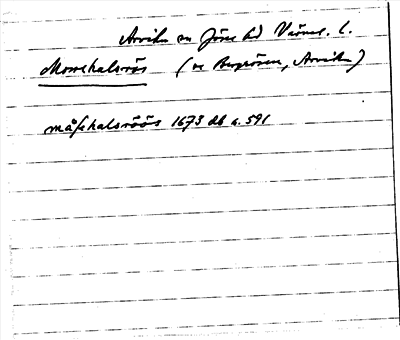 Arvika sn Jösse hd Värml. l.
Morrhalsrös (se Bergrösen, Arvika)
måsehalsröös 1673 db s. 591